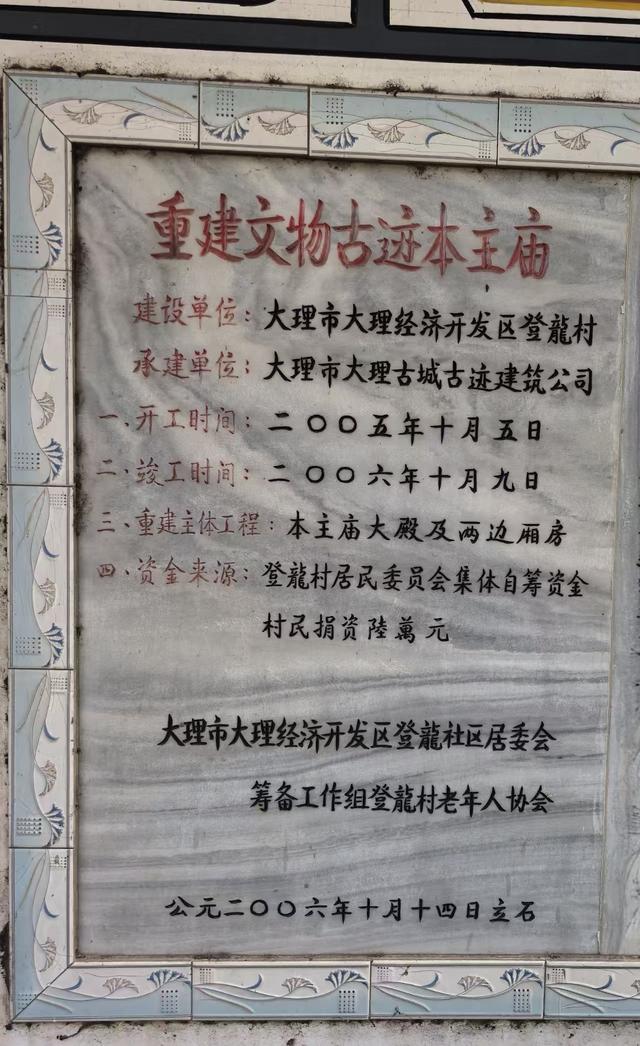 重建文物古迹本主庙
建设单位：大理市大理经济开发区登龍村
承建单位：大理市大理古城古迹建筑公司
一、开工时间：二〇〇五年十月五日
二、竣工时间：二〇〇六年十月九日
三、重建主体工程：本主庙大殿及两边厢房
四、资金来源：登龍村居民委员会集体自筹资金
村民捐资陸萬元
大理市大理经济开发区登龍社区居委会
筹备工作组登龍村老年人协会
公元二〇〇六年十月十四日立石